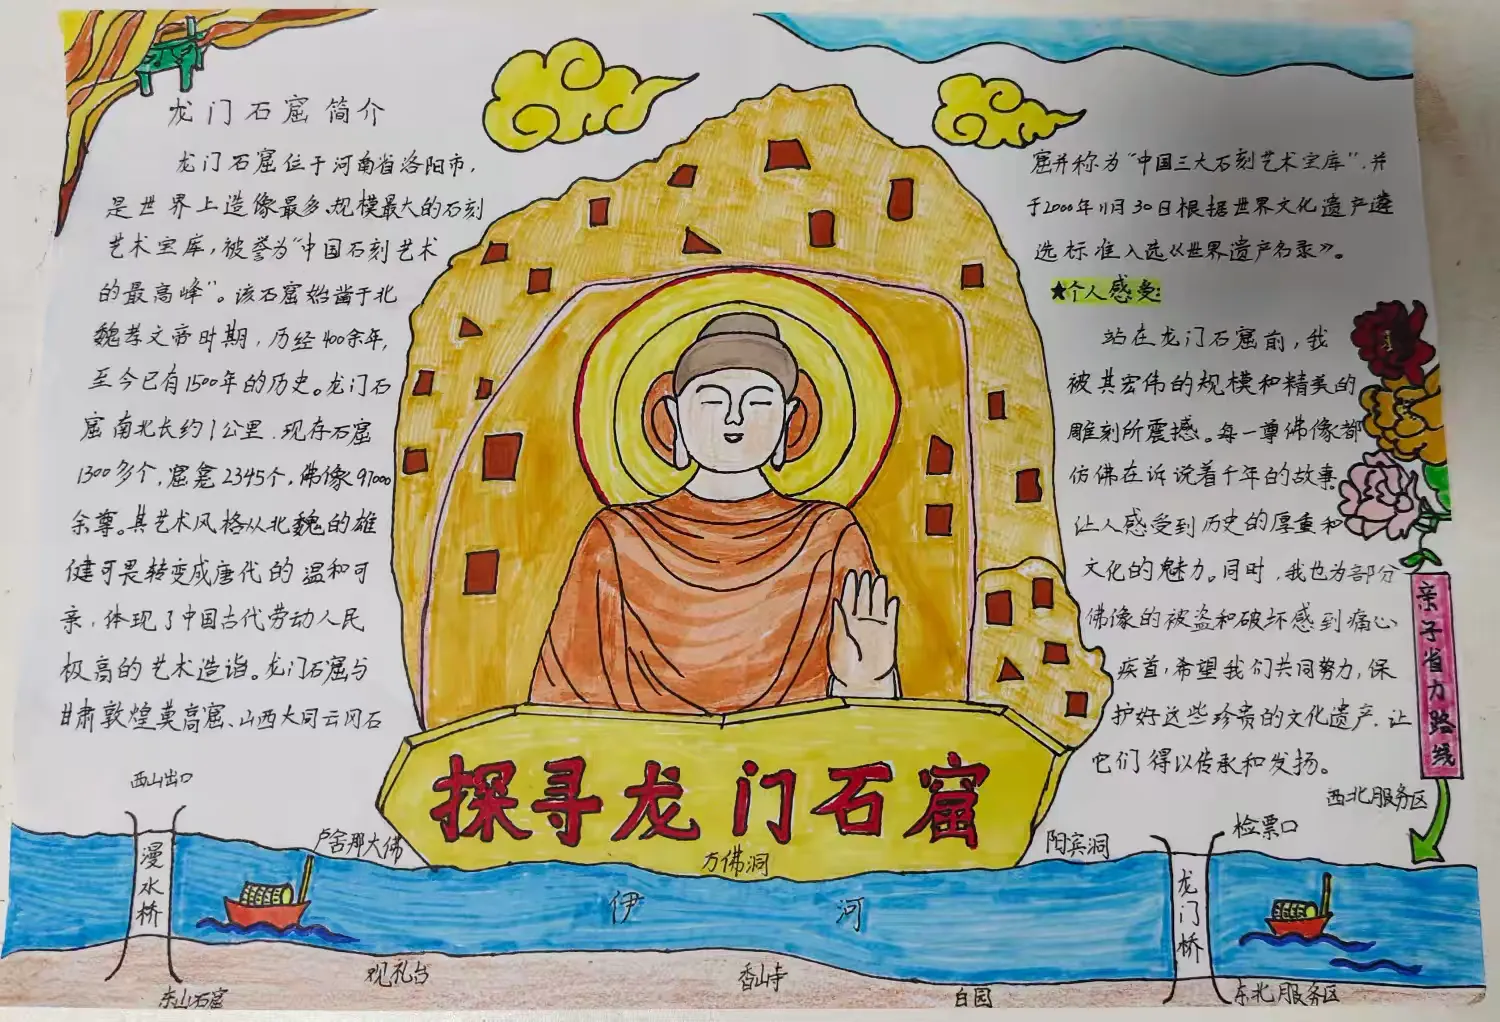 龙门石窟简介
龙门石窟位于河南省洛阳市，
是世界上造像最多、规模最大的石刻
艺术宝库，被誉为“中国石刻艺术
的最高峰”。该石窟始凿于北
魏孝文帝时期，历经400余年，
至今已有1500年的历史。龙门石
窟南北长约1公里，现存石窟
1300多个，窟龛2345个，佛像97000
余尊。其艺术风格从北魏的雄
健可畏转变成唐代的温和可
亲，体现了中国古代劳动人民
极高的艺术造诣。龙门石窟与
甘肃敦煌莫高窟、山西大同云冈石
窟并称为“中国三大石刻艺术宝库”，并
于2000年11月30日根据世界文化遗产遴
选标准入选《世界遗产名录》。
★个人感受:
站在龙门石窟前，我
被其宏伟的规模和精美的
雕刻所震撼。每一尊佛像都
仿佛在诉说着千年的故事
让人感受到历史的厚重和
文化的魅力。同时，我也为部分
佛像的被盗和破坏感到痛心
疾首，希望我们共同努力，保
护好这些珍贵的文化遗产，让
它们得以传承和发扬。
亲子省力路线
探寻龙门石窟
西北服务区
西山出口
卢舍那大佛
万佛洞
阳宾洞
检票口
漫水桥
伊河
龙门桥
东山石窟
观礼台
香山寺
白园
东北服务区